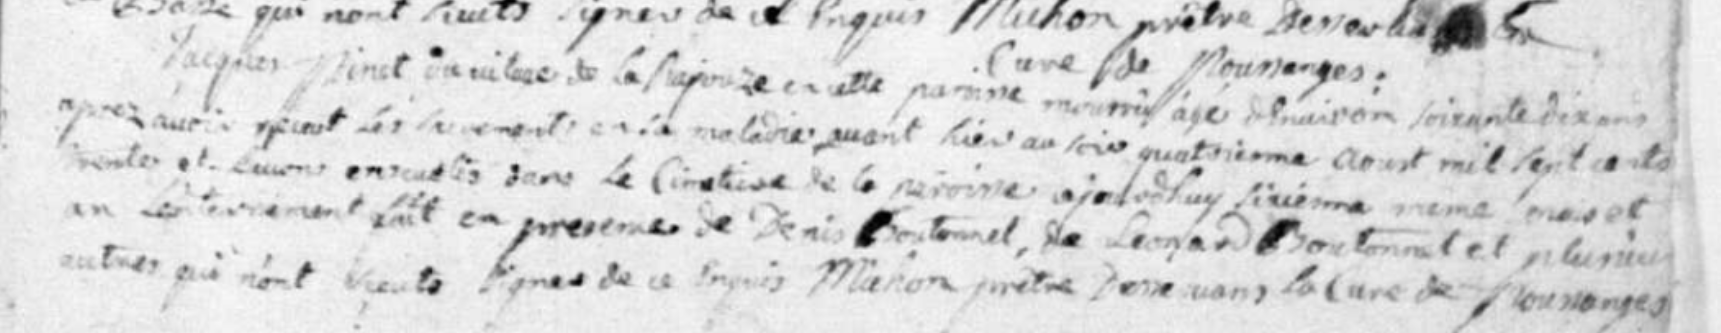 qui nont sceuts signer de ce Enquis Michon prêtre Desservant la
Cure de Poussanges.
Jacques Pinet du village de la en cette paroisse mourru âgé d'Enuiron soixante dix ans
aprez avoir receut les sacrements en sa maladie avant hier au soir quatrieme aoust mil sept cents
trente et l'avons enseuelis dans le Cimetiere de la paroisse ajourdhuy sixiéme meme mois et
an L'enterrement fait en presence de Denis Boutonnet, de Leonard Boutonnet et plusieurs
autres qui n'ont sceuts signer de ce Enquis Michon prêtre Desservans la Cure de Poussanges